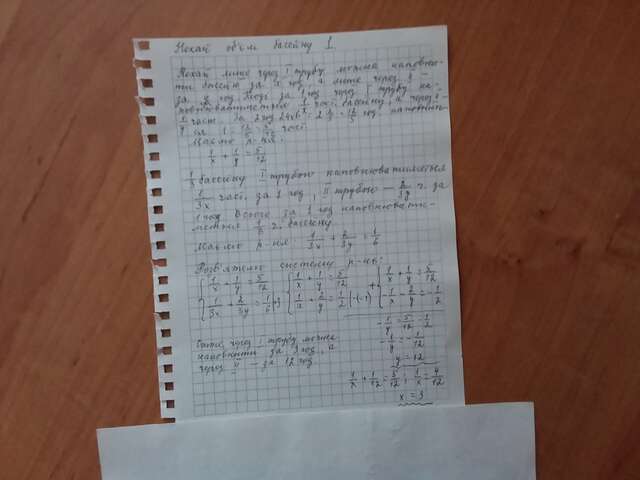 Нехай об'єм басейну 1.
Нехай лише через I трубу можна наповни-
ти басейн за x год, а лише через II
за y год. Тоді за 1 год через I трубу на-
повнюватиметься 1/x часті басейну, а через II
1/y част. За 2 год 24 хв = 2 2/5 = 12/5 год
1 : 12/5 = 5/12 часті.
Маємо р-ня:
1/x + 1/y = 5/12
1/3 басейну I трубою наповнюватиметься
1/3x часті, за 1 год, II трубою — 2/3y ч. за
1 год. Всього за 1 год наповнювати-
меться 1/6 ч. басейну
Маємо р-ня: 1/3x + 2/3y = 1/6
Розв'яжемо систему р-нь:
{ 1/x + 1/y = 5/12 { 1/x + 1/y = 5/12 + { 1/x + 1/y = 5/12
1/3x + 2/3y = 1/6 |·3 1/x + 2/y = 1/2 |·(-1) -1/x - 2/y = -1/2
-1/y = 5/12 - 1/2
-1/y = -1/12
y = 12
1/x + 1/12 = 5/12; 1/x = 4/12
x = 3
через I трубу можна
наповнити за 3 год, а
через II — за 12 год.